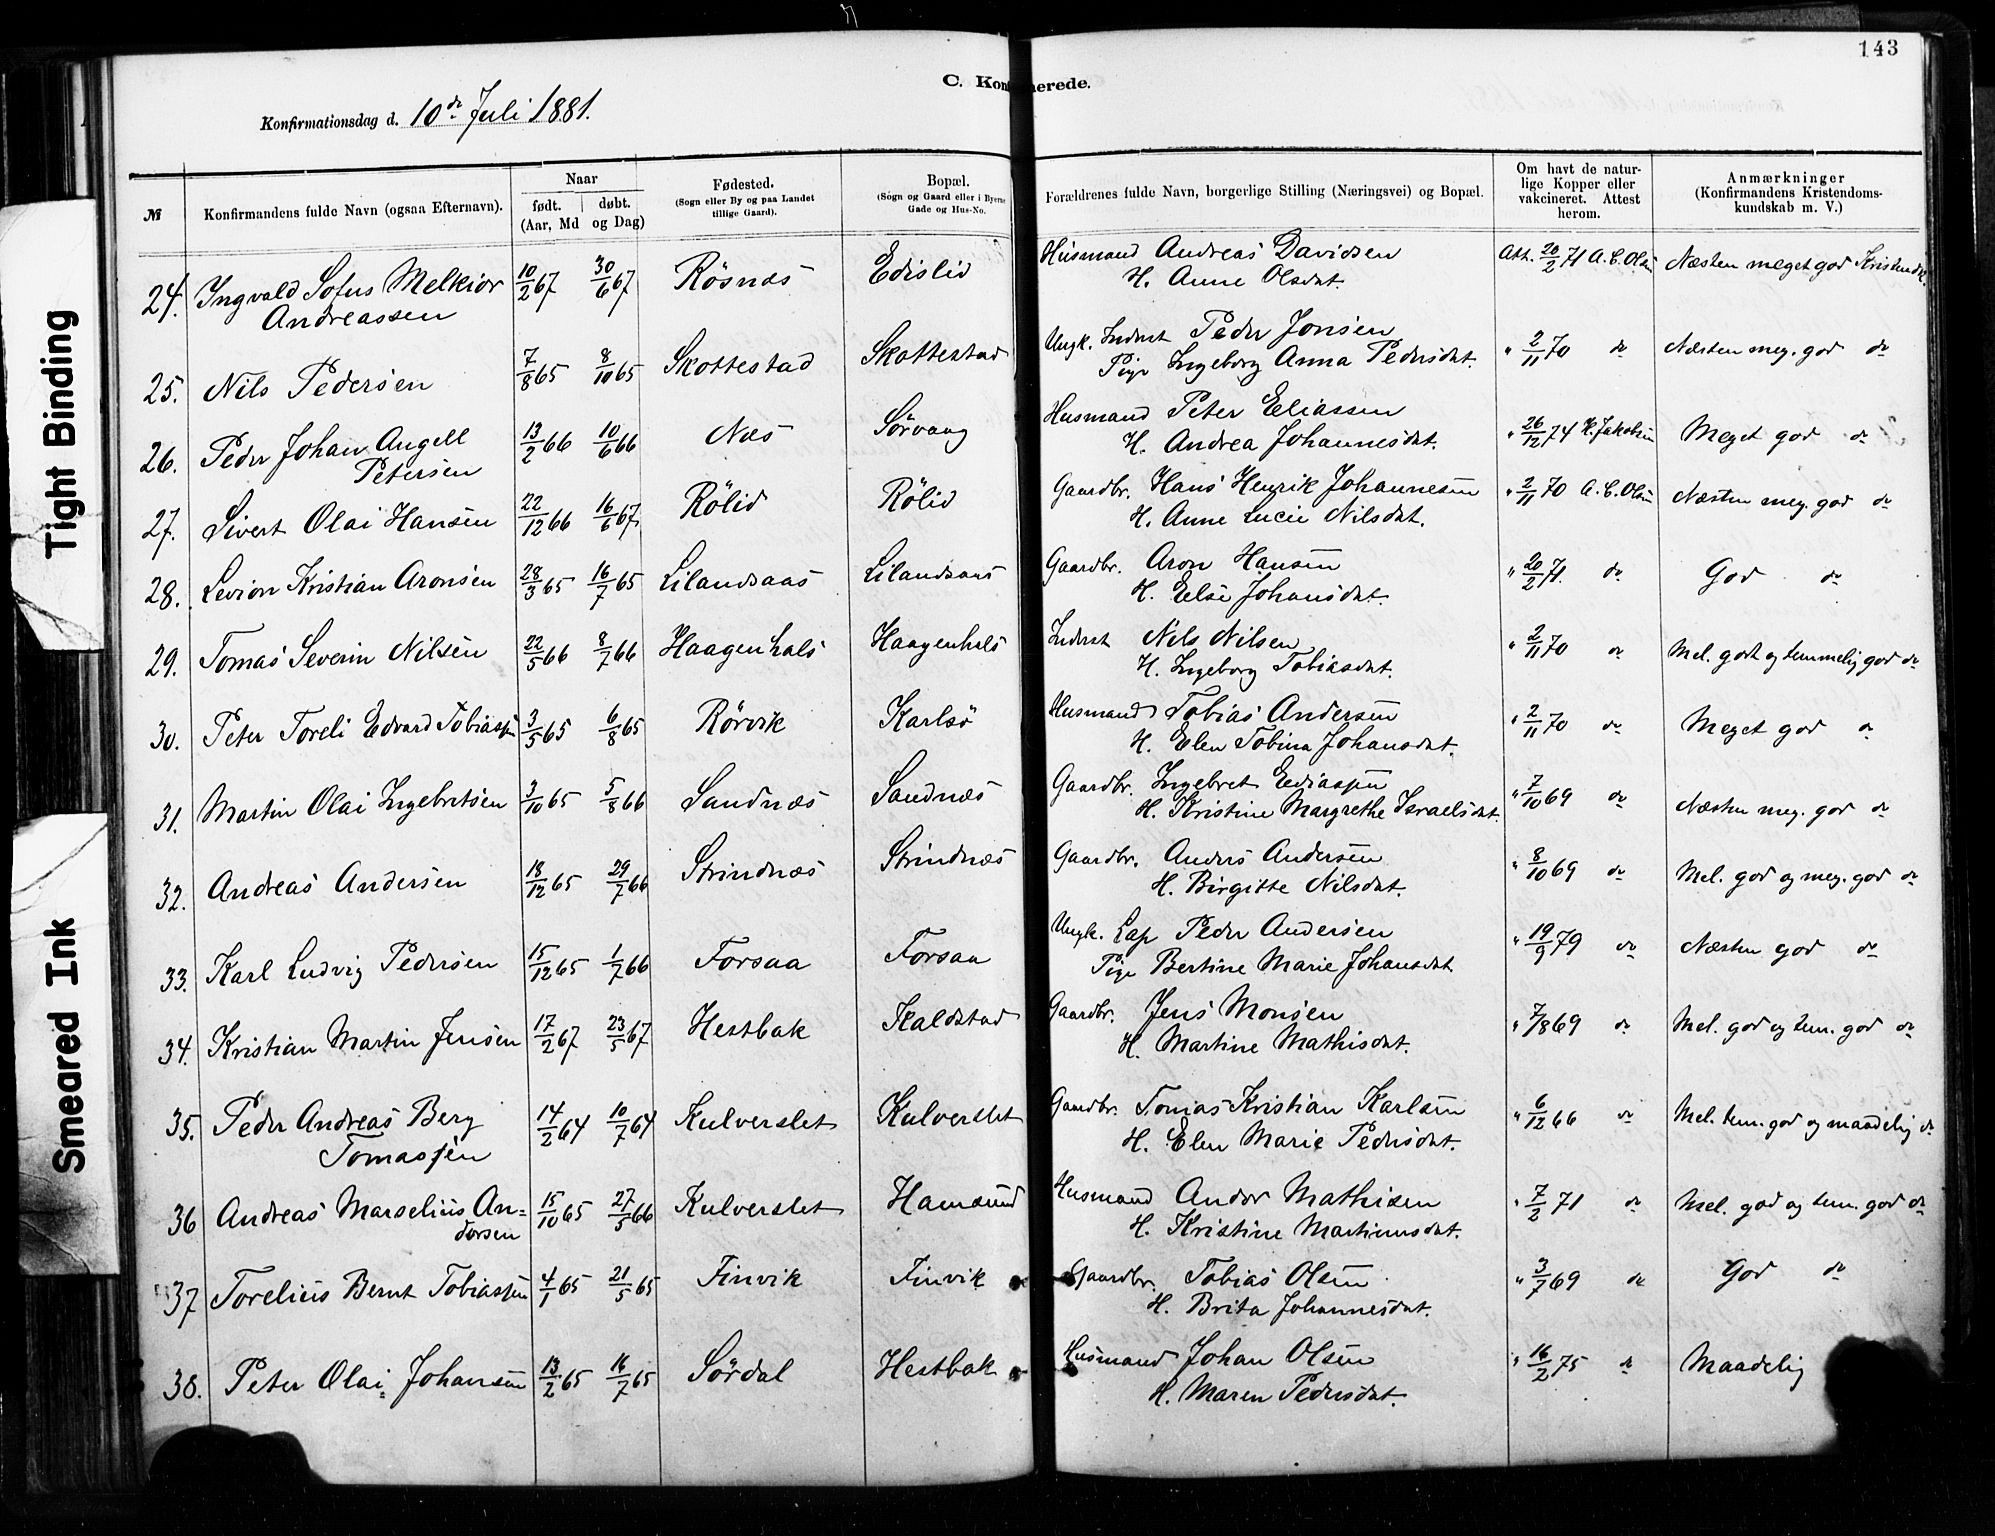 143
C. Konfirmerede.
Konfirmationsdag d. 10de Juli 1881.
№
Konfirmandens fulde Navn (ogsaa Efternavn).
Naar
født. døbt.
(Aar, Md og Dag)
Fødested.
(Sogn eller By og paa Landet
tillige Gaard).
Bopæl.
(Sogn og Gaard eller i Byerne
Gade og Hus-No.
Forældrenes fulde Navn, borgerlige Stilling (Næringsvei) og Bopæl.
Om havt de natur-
lige Kopper eller
vakcineret. Attest
herom.
Anmærkninger
(Konfirmandens Kristendoms-
kundskab m. V.)
24. Ingvald Sofus Melkior 10/2 67 30/6 67 Rösnæs Edislid Husmand Andreas Davidsen Att. 20/2 71 A. C. Olsen Næsten meget god Kristendk.
Andreassen H. Anne Olsdat.
25. Nils Pedersen 7/8 65 8/10 65 Skottestad Skottestad Ungk. Inderst Peder Jonsen " 2/11 70 do Næsten meg. god do
Pige Ingeborg Anna Pedersdat.
26. Peder Johan Angell 13/2 66 10/6 66 Næs Sørvaag Husmand Peter Eliassen " 26/12 74 H. Jakobsen Meget god do
Petersen H. Andrea Johannesdat.
27. Sivert Olai Hansen 22/12 66 16/6 67. Rölid Rölid Gaardbr. Hans Henrik Johannesen " 2/11 70 A. C. Olsen Næsten meg. god do
H. Anne Lucie Nilsdat.
28. Levion Kristian Aronsen 28/3 65 16/7 65 Lilandsaas Lilandsaas Gaardbr. Aron Hansen " 20/2 71. do God do
H. Else Johansdat.
29. Tomas Severin Nilsen 22/5 66 8/7 66 Haagenhals Haagenhals Inderst Nils Nilsen " 2/11 70 do Mel. godt og temmelig god do
H. Ingeborg Tobiasdat.
30. Peter Toreli Edvard Tobiassen 3/5 65 6/8 65 Rörvik Karlsö Husmand Tobias Andersen " 2/11 70 do Meget god do
H. Elen Tobina Johansdat.
31. Martin Olai Ingebretsen 3/10 65 5/8 66 Sandnæs Sandnæs Gaardbr. Ingebret Ediassen " 7/10 69 do Næsten meg. god do
H. Kristine Margrethe Israelsdat.
32. Andreas Andersen 18/12 65 29/7 66 Strindnæs Strindnæs Gaardbr. Anders Andersen " 8/10 69 do Mel. god og meg. god do
H. Birgitte Nilsdat.
33. Karl Ludvig Pedersen 15/12 65 1/7 66 Forsaa Forsaa Ungk. Lap Peder Andersen " 19/9 79 do Næsten god do
Pige Bertine Marie Johansdat
34. Kristian Martin Jensen 17/2 67 23/5 67 Hestbak Kaldstad Gaardbr. Jens Monsen " 7/8 69 do Mel. god og tem. god do
H. Martine Mathisdat.
35. Peder Andreas Berg 14/2 64 10/7 64 Kulverslet Kulverslet Gaardbr. Tomas Kristian Karlsen " 6/12 66 do Mel. tem. god og maadelig do
Tomassen H. Elen Marie Pedersdat.
36 Andreas Marselius An= 15/10 65 27/5 66 Kulverslet Hamsund Husmand Andor Mathisen " 7/2 71 do Mel. god og tem. god do
dorsen H. Kristine Martinusdat.
37 Torelius Bernt Tobiassen 4/1 65 21/5 65 Finvik Finvik Gaardbr. Tobias Olsen " 3/7 69 do God do
H. Brita Johannesdat.
38. Peter Olai Johansen 13/2 65 16/7 65 Sördal Hestbak Husmand Johan Olsen " 16/2 75 do Maadelig
H. Maren Pedersdat.
Tight Binding
Smeared Ink